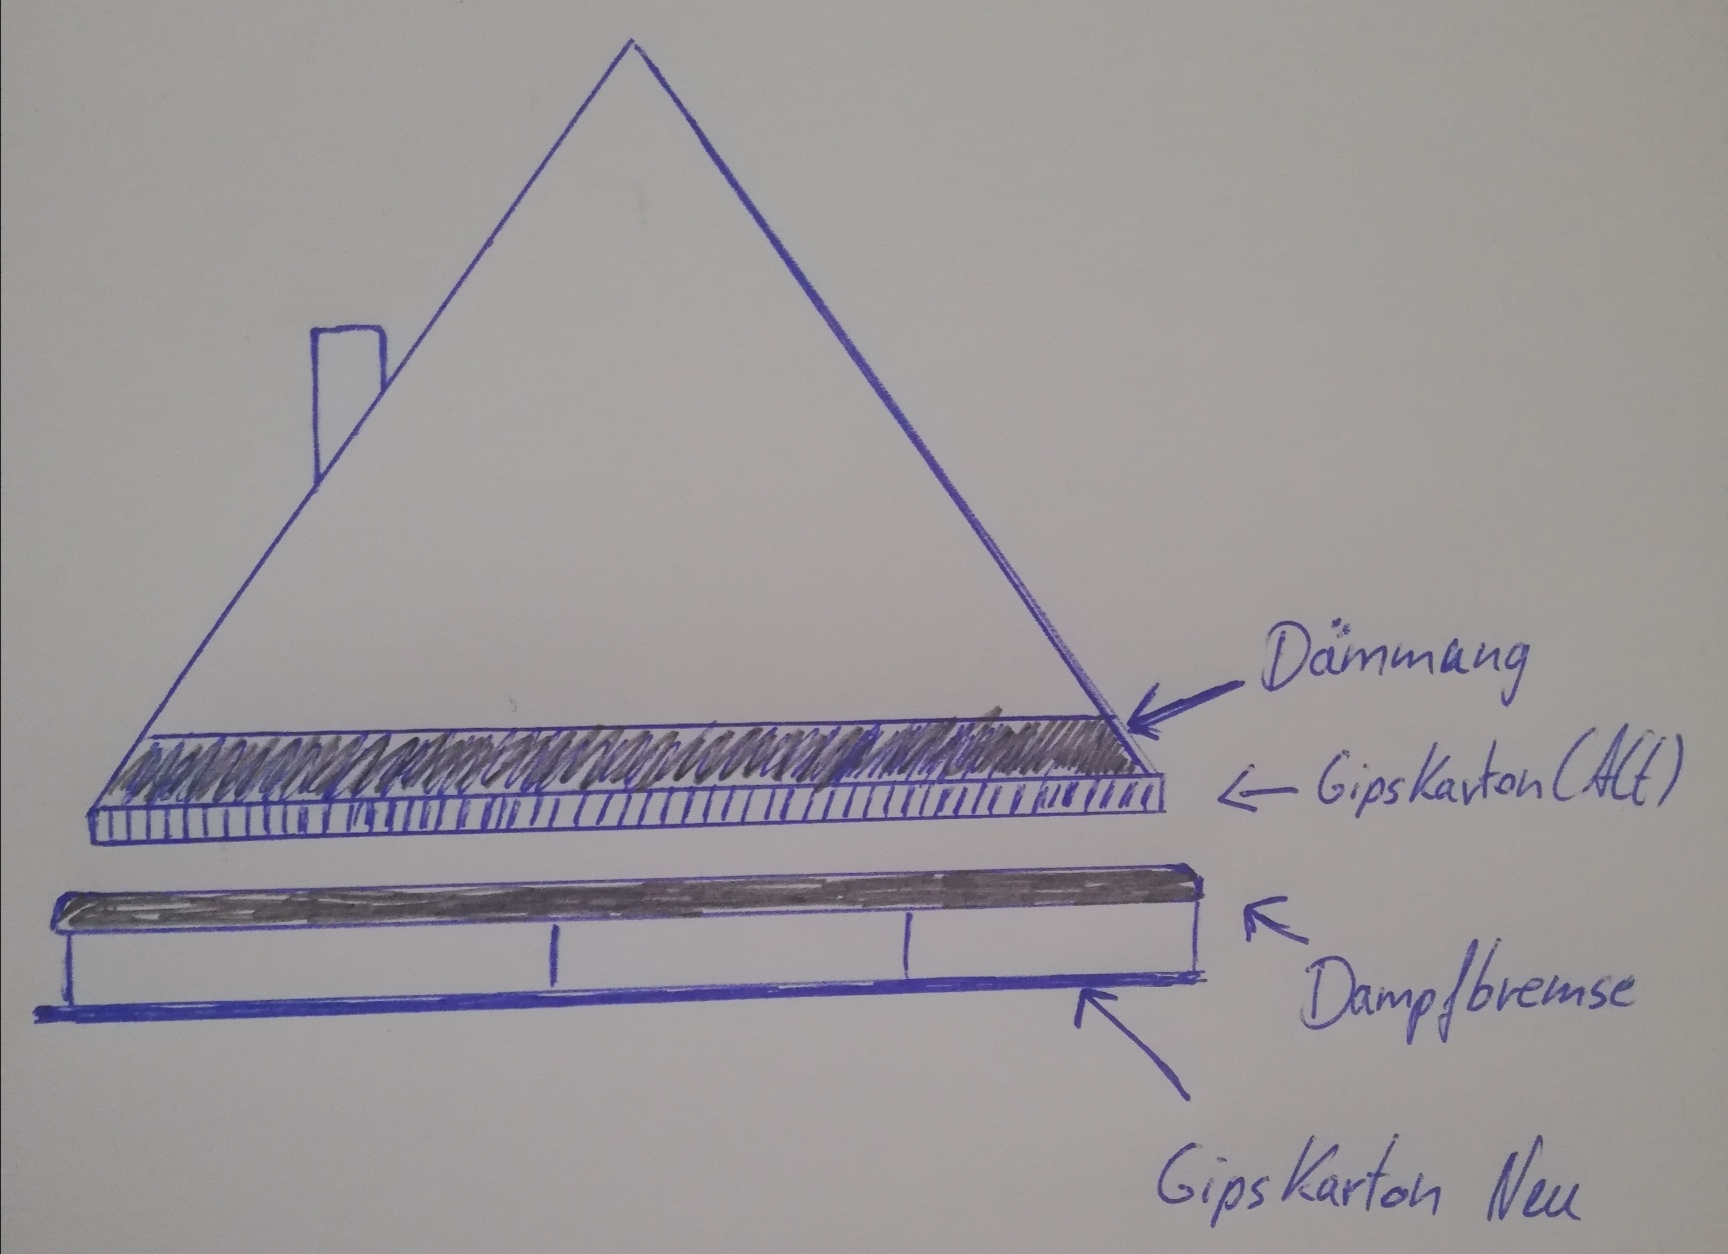 Dämmung
Gipskarton (Alt)
Dampfbremse
Gipskarton Neu